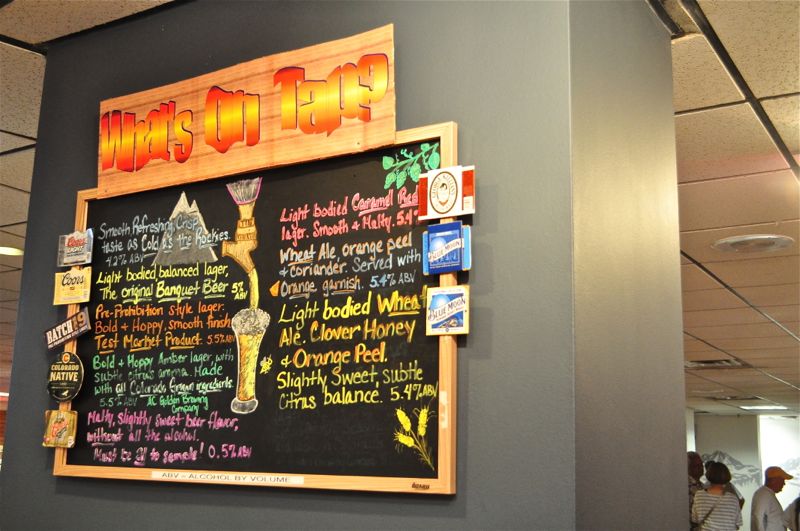 What's On Tap?
Smooth, Refreshing, Crisp
taste as Cold as the Rockies.
4.2% ABV
Light bodied balanced lager,
The original Banquet Beer 5%
ABV
Pre-Prohibition style lager.
Bold & Hoppy, smooth finish
Test Market Product. 5.5% ABV
Bold & Hoppy Amber lager, with
subtle citrus aroma. Made
with all Colorado Grown ingredients.
5.5% ABV AC Golden Brewing
Company
Malty, slightly sweet beer flavor,
without all the alcohol.
Must be 21 to sample! 0.5% ABV
Light bodied Caramel Red
lager. Smooth & Malty. 5.4%
Wheat Ale, orange peel
& Coriander. Served with
Orange garnish. 5.4% ABV
Light bodied Wheat
Ale. Clover Honey
& Orange Peel.
Slightly Sweet, subtle
Citrus balance. 5.4% ABV
Coors
LIGHT
Coors
BATCH 19
COLORADO
NATIVE
BLUE MOON
BLUE MOON
ABV = ALCOHOL BY VOLUME